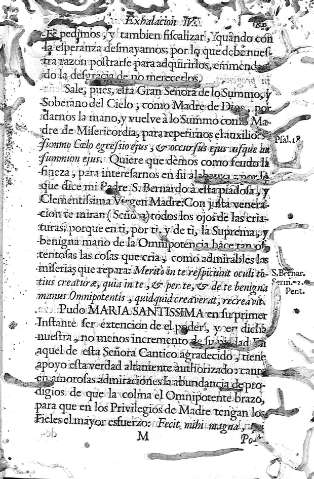 Exhalacion IV.
pedimos, y tambien fiscalizar, quando con
la esperanza desmayamos: por lo que debe nues-
tra razon postrarse para adquirirlos, enmendan-
do la desgracia de no merecerlos.
Sale, pues, esta Gran Señora de lo Summo, y
Soberano del Cielo, como Madre de Dios, por
darnos la mano, y vuelve à lo Summo como Ma-
dre de Misericordia, para repetirnos el auxilio:
summo Cœlo egressio ejus, & occursus ejus usque in
summum ejus. Quiere que dèmos como feudo la
fineza, para interesarnos en su alabanza, por lo
que dice mi Padre S. Bernardo à esta piadosa, y
Clementissima Virgen Madre: Con justa venera-
cion te miran (Señora) todos los ojos de las cria-
turas; porque en ti, por ti, y de ti, la Suprema, y
benigna mano de la Omnipotencia hace tan os-
tentosas las cosas que cria, como admirables las
miserias que repara: Merito in te respiciunt oculi to-
tius creaturæ, quia in te, & per te, & de te benigna
manus Omnipotentis, quidquid creaverat, recreavit.
Pudo MARIA SANTISSIMA en su primer
Instante ser extencion de el poder, y en dicha
nuestra, no menos incremento de su piedad. En
aquel de esta Señora Cantico agradecido, tiene
apoyo esta verdad altamente authorizado: canta
en amorosas admiraciones la abundancia de pro-
digios de que la colma el Omnipotente brazo,
para que en los Privilegios de Madre tengan los
Fieles el mayor esfuerzo: Fecit, mihi magna,
M
Psal. 18.
S. Bernar.
Serm. 2.
Pent.